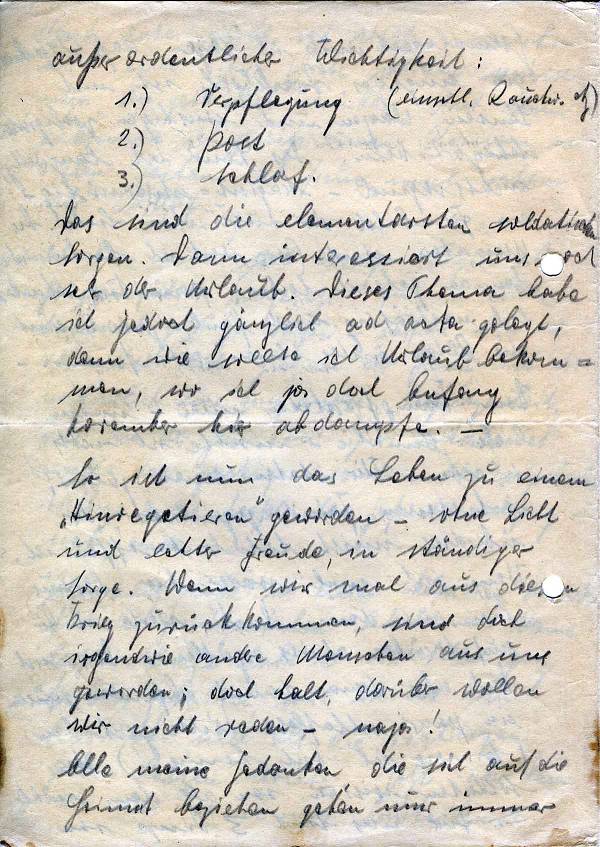 außerordentlicher Wichtigkeit:
1.) Verpflegung (einschl. Rauchw. etz)
2.) Post
3.) Schlaf.
Das sind die elementarsten soldatischen
Sorgen. Dann interessiert uns noch
sehr der Urlaub. Dieses Thema habe
ich jedoch gänzlich ad acta gelegt,
denn wie sollte ich Urlaub bekom=
men, wo ich ja doch Anfang
November hier abdampfe. —
So ist nun das Leben zu einem
„Hinvegetieren" geworden – ohne Licht
und echter Freude, in ständiger
Sorge. Wenn wir mal aus diesem
Krieg zurückkommen, sind doch
irgendwie andre Menschen aus uns
geworden; doch halt, darüber wollen
wir nicht reden – naja!
Alle meine Gedanken die sich auf die
Heimat beziehen gehen nur immer